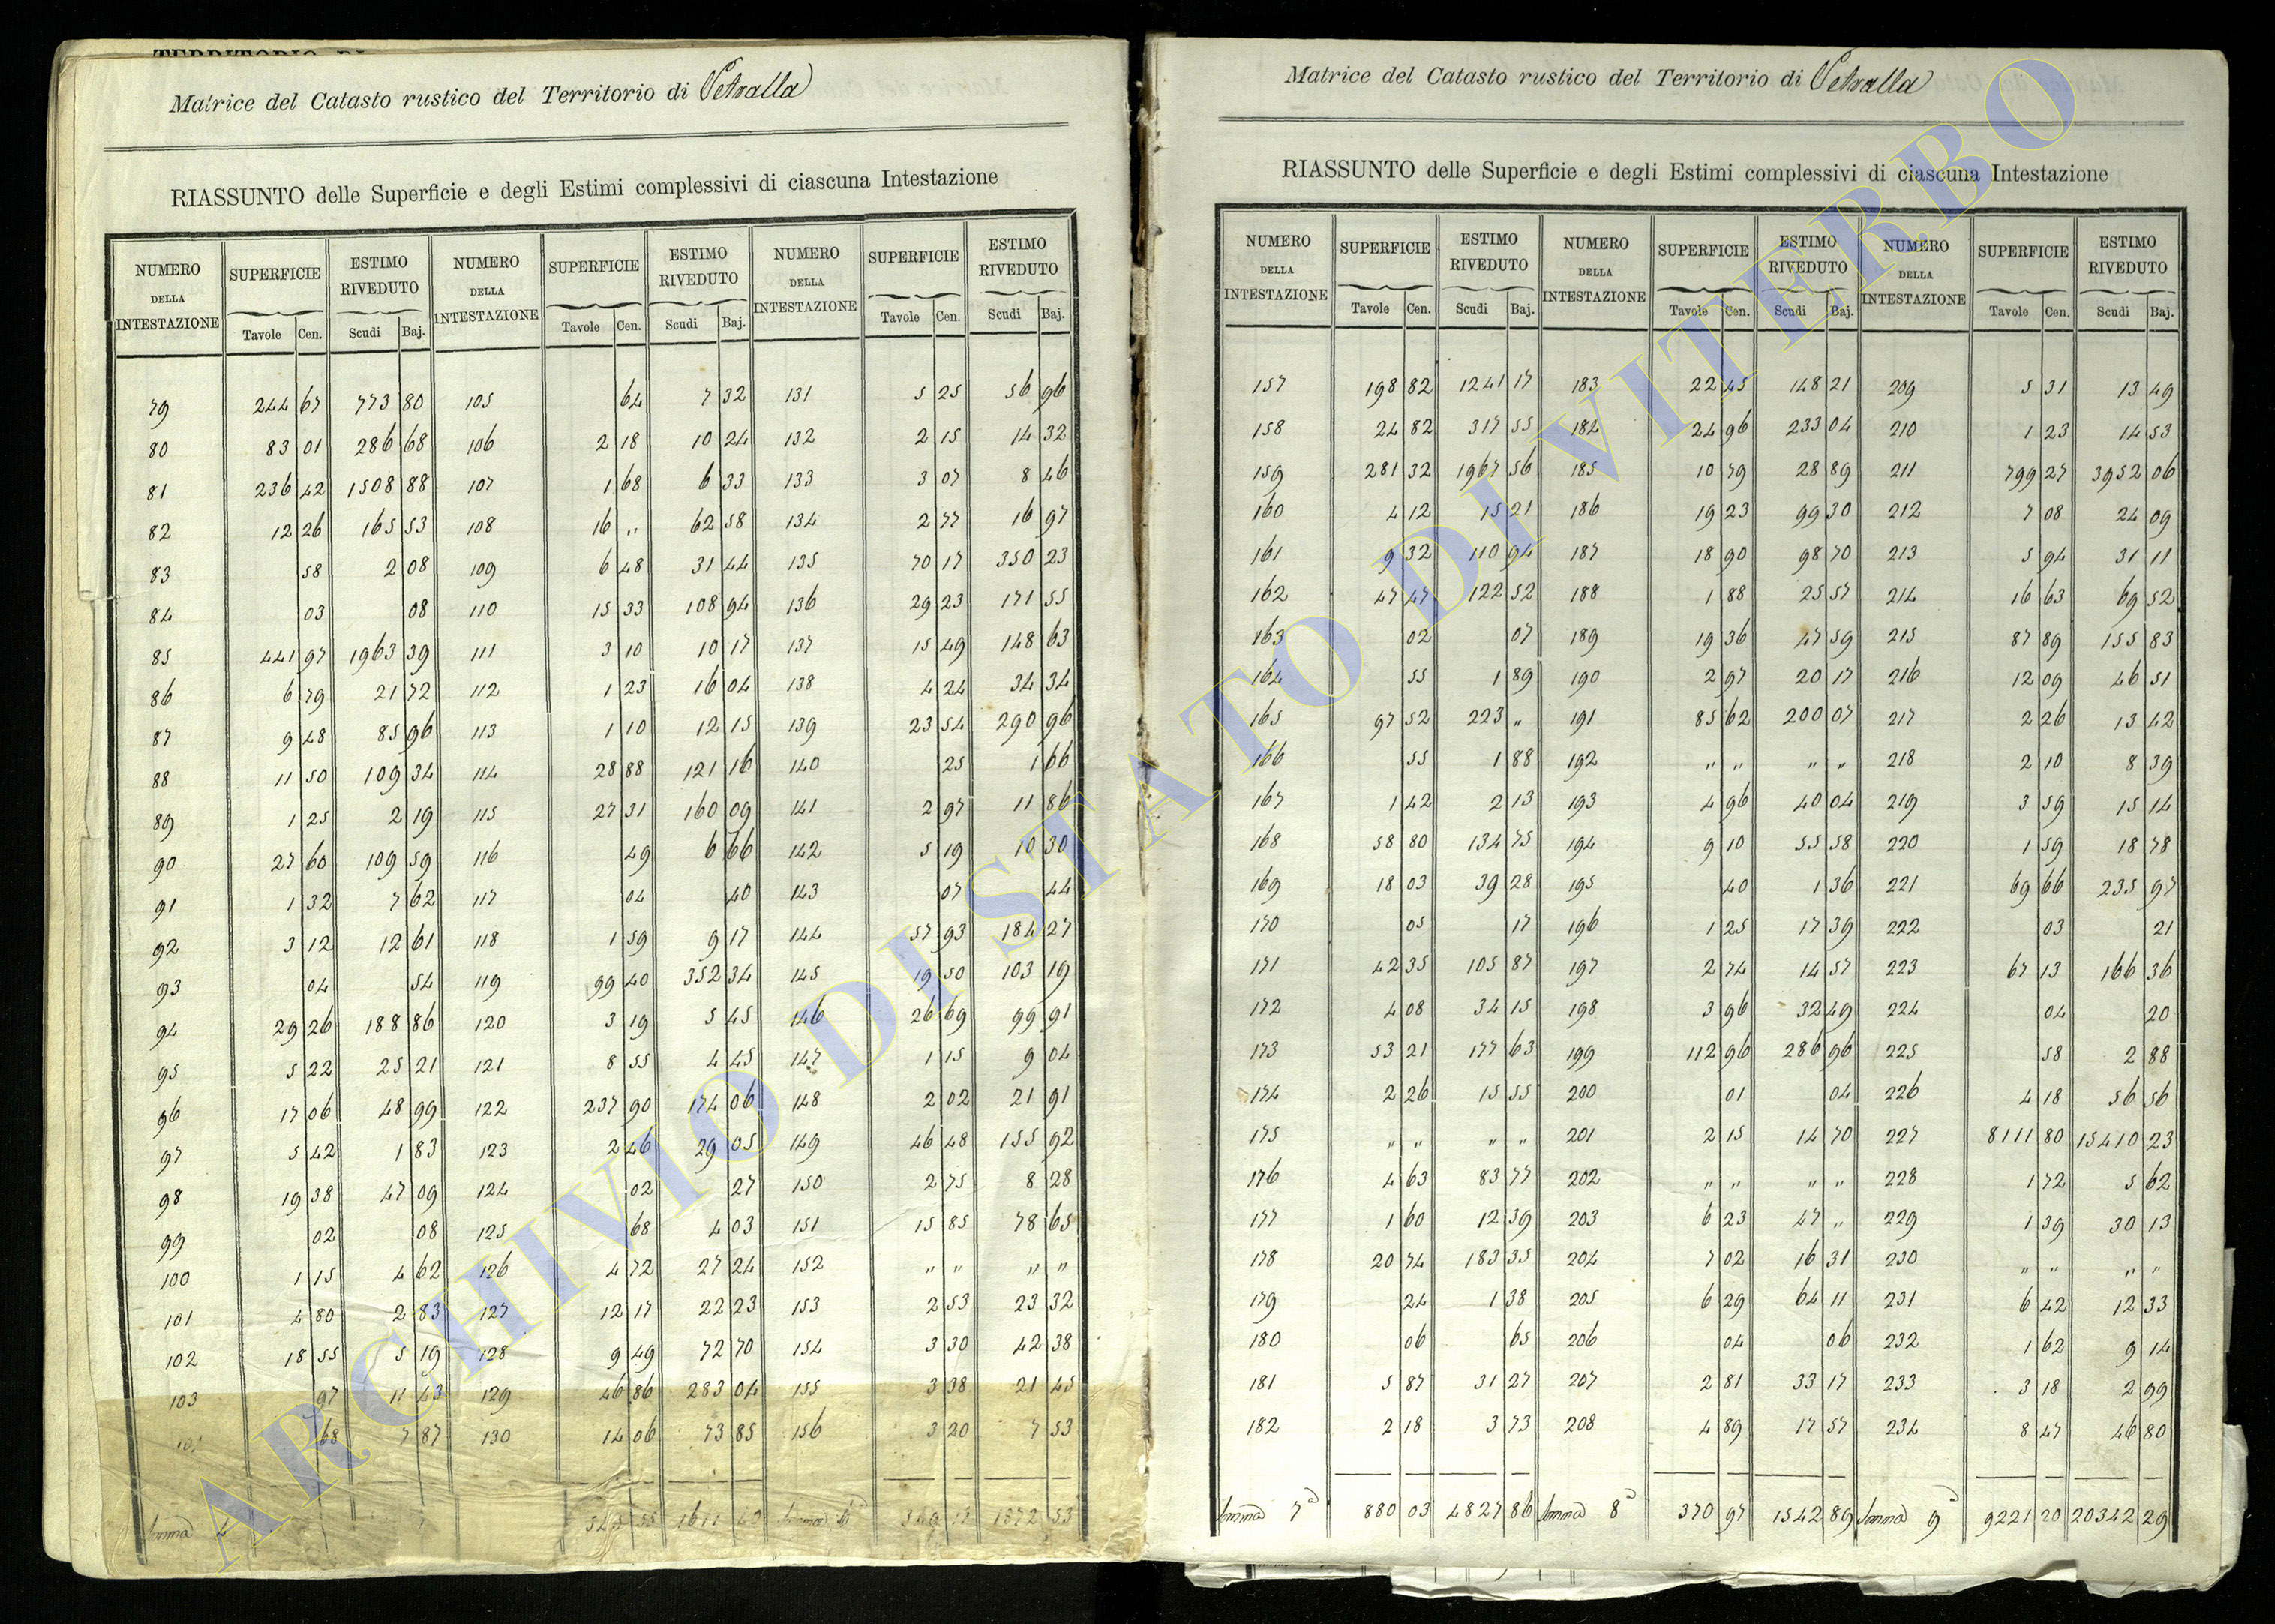 TERRITORIO DI
Matrice del Catasto rustico del Territorio di Vetralla
RIASSUNTO delle Superficie e degli Estimi complessivi di ciascuna Intestazione
NUMERO DELLA INTESTAZIONE SUPERFICIE ESTIMO RIVEDUTO NUMERO DELLA INTESTAZIONE SUPERFICIE ESTIMO RIVEDUTO NUMERO DELLA INTESTAZIONE SUPERFICIE ESTIMO RIVEDUTO
Tavole Cen. Scudi Baj. Tavole Cen. Scudi Baj. Tavole Cen. Scudi Baj.
79 244 67 773 80 105 64 7 32 131 5 25 56 96
80 83 01 286 68 106 2 18 10 24 132 2 15 14 32
81 236 42 1508 88 107 1 68 6 33 133 3 07 8 46
82 12 26 165 53 108 16 „ 62 58 134 2 77 16 97
83 58 2 08 109 6 48 31 44 135 70 17 350 23
84 03 08 110 15 33 108 94 136 29 23 171 55
85 441 97 1963 39 111 3 10 10 17 137 15 49 148 63
86 6 79 21 72 112 1 23 16 04 138 4 24 34 34
87 9 48 85 96 113 1 10 12 15 139 23 54 290 96
88 11 50 109 34 114 28 88 121 16 140 25 1 66
89 1 25 2 19 115 27 31 160 09 141 2 97 11 86
90 27 60 109 59 116 49 6 66 142 5 19 10 30
91 1 32 7 62 117 04 40 143 07 44
92 3 12 12 61 118 1 59 9 17 144 57 93 184 27
93 04 54 119 99 40 352 34 145 19 50 103 19
94 29 26 188 86 120 3 19 5 45 146 26 69 99 91
95 5 22 25 21 121 8 55 4 45 147 1 15 9 04
96 17 06 48 99 122 237 90 174 06 148 2 02 21 91
97 5 42 1 83 123 2 46 29 05 149 46 48 155 92
98 19 38 47 09 124 02 27 150 2 75 8 28
99 02 08 125 68 4 03 151 15 85 78 65
100 1 15 4 62 126 4 72 27 24 152 „ „ „ „
101 4 80 2 83 127 12 17 22 23 153 2 53 23 32
102 18 55 5 19 128 9 49 72 70 154 3 30 42 38
103 97 11 43 129 46 86 283 04 155 3 38 21 45
68 7 87 130 14 06 73 85 156 3 20 7 53
Somma 1872 53
Matrice del Catasto rustico del Territorio di Vetralla
RIASSUNTO delle Superficie e degli Estimi complessivi di ciascuna Intestazione
NUMERO DELLA INTESTAZIONE SUPERFICIE ESTIMO RIVEDUTO NUMERO DELLA INTESTAZIONE SUPERFICIE ESTIMO RIVEDUTO NUMERO DELLA INTESTAZIONE SUPERFICIE ESTIMO RIVEDUTO
Tavole Cen. Scudi Baj. Tavole Cen. Scudi Baj. Tavole Cen. Scudi Baj.
157 198 82 1241 17 183 22 45 148 21 209 5 31 13 49
158 24 82 317 55 184 24 96 233 04 210 1 23 14 53
159 281 32 1967 56 185 10 79 28 89 211 799 27 3952 06
160 4 12 15 21 186 19 23 99 30 212 7 08 24 09
161 9 32 110 94 187 18 90 98 70 213 5 94 31 11
162 47 47 122 52 188 1 88 25 57 214 16 63 69 52
163 02 07 189 19 36 47 59 215 87 89 155 83
164 55 1 89 190 2 97 20 17 216 12 09 46 51
165 97 52 223 „ 191 85 62 200 07 217 2 26 13 42
166 55 1 88 192 „ „ „ „ 218 2 10 8 39
167 1 42 2 13 193 4 96 40 04 219 3 59 15 14
168 58 80 134 75 194 9 10 55 58 220 1 59 18 78
169 18 03 39 28 195 40 1 36 221 69 66 235 97
170 05 17 196 1 25 17 39 222 03 21
171 42 35 105 87 197 2 74 14 57 223 67 13 166 36
172 4 08 34 15 198 3 96 32 49 224 04 20
173 53 21 177 63 199 112 96 286 96 225 58 2 88
174 2 26 15 55 200 01 04 226 4 18 56 56
175 „ „ „ „ 201 2 15 14 70 227 8111 80 15410 23
176 4 63 83 77 202 „ „ „ „ 228 1 72 5 62
177 1 60 12 39 203 6 23 47 „ 229 1 39 30 13
178 20 74 183 35 204 7 02 16 31 230 „ „ „ „
179 24 1 38 205 6 29 64 11 231 6 42 12 33
180 06 65 206 04 06 232 1 62 9 14
181 5 87 31 27 207 2 81 33 17 233 3 18 2 99
182 2 18 3 73 208 4 89 17 57 234 8 47 46 80
Somma 7ª 880 03 4827 86 Somma 8ª 370 97 1542 89 Somma 9ª 9221 20 20342 29
ARCHIVIO DI STATO DI VITERBO